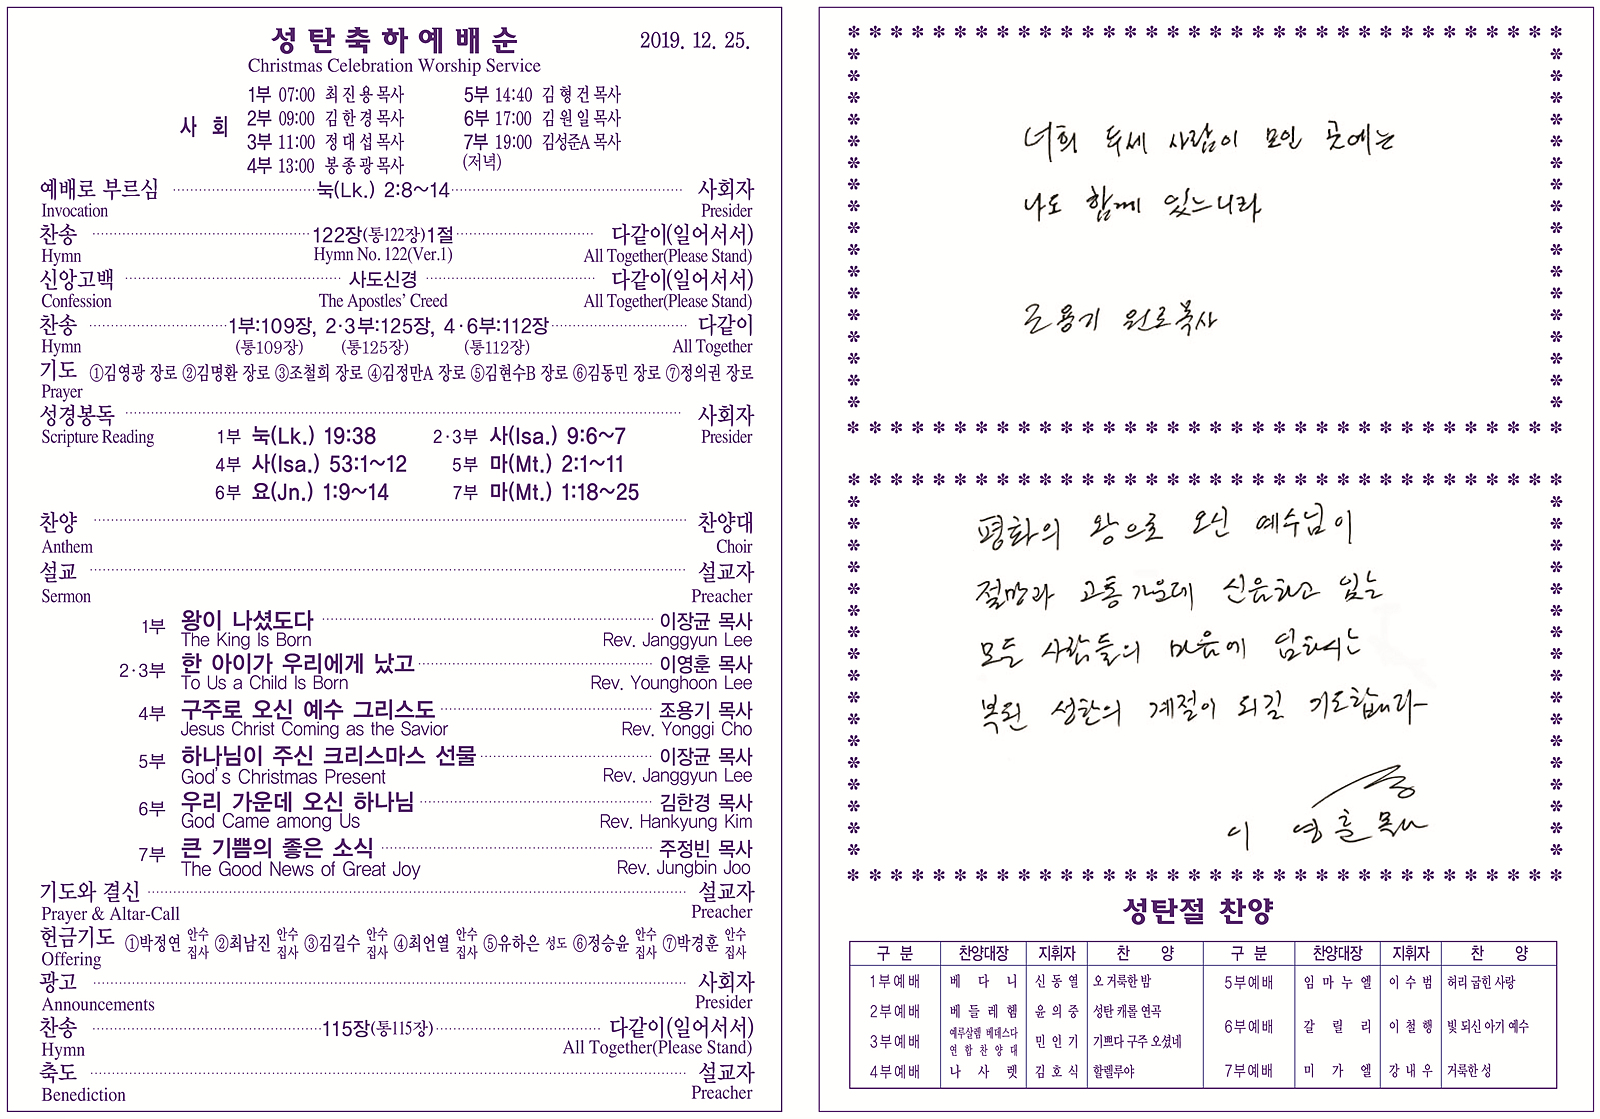 성탄축하예배순
2019. 12. 25.
Christmas Celebration Worship Service
사 회
1부 07:00 최진용목사 5부 14:40 김형건목사
2부 09:00 김한경목사 6부 17:00 김원일목사
3부 11:00 정대섭목사 7부 19:00 김성준A목사
4부 13:00 봉종광목사 (저녁)
예배로 부르심 눅(Lk.) 2:8~14 사회자
Invocation Presider
찬송 122장(통122장)1절 다같이(일어서서)
Hymn Hymn No. 122(Ver.1) All Together(Please Stand)
신앙고백 사도신경 다같이(일어서서)
Confession The Apostles' Creed All Together(Please Stand)
찬송 1부:109장, 2·3부:125장, 4·6부:112장 다같이
Hymn (통109장) (통125장) (통112장) All Together
기도 ①김영광 장로 ②김명환 장로 ③조철희 장로 ④김정만A 장로 ⑤김현수B 장로 ⑥김동민 장로 ⑦정의권 장로
Prayer
성경봉독 사회자
Scripture Reading 1부 눅(Lk.) 19:38 2·3부 사(Isa.) 9:6~7 Presider
4부 사(Isa.) 53:1~12 5부 마(Mt.) 2:1~11
6부 요(Jn.) 1:9~14 7부 마(Mt.) 1:18~25
찬양 찬양대
Anthem Choir
설교 설교자
Sermon Preacher
1부 왕이 나셨도다 이장균 목사
The King Is Born Rev. Janggyun Lee
2·3부 한 아이가 우리에게 났고 이영훈 목사
To Us a Child Is Born Rev. Younghoon Lee
4부 구주로 오신 예수 그리스도 조용기 목사
Jesus Christ Coming as the Savior Rev. Yonggi Cho
5부 하나님이 주신 크리스마스 선물 이장균 목사
God's Christmas Present Rev. Janggyun Lee
6부 우리 가운데 오신 하나님 김한경 목사
God Came among Us Rev. Hankyung Kim
7부 큰 기쁨의 좋은 소식 주정빈 목사
The Good News of Great Joy Rev. Jungbin Joo
기도와 결신 설교자
Prayer & Altar-Call Preacher
헌금기도 ①박정연 안수집사 ②최남진 안수집사 ③김길수 안수집사 ④최언열 안수집사 ⑤유하은 성도 ⑥정승윤 안수집사 ⑦박경훈 안수집사
Offering
광고 사회자
Announcements Presider
찬송 115장(통115장) 다같이(일어서서)
Hymn All Together(Please Stand)
축도 설교자
Benediction Preacher
너희 두세 사람이 모인 곳에는
나도 함께 있느니라
조용기 원로목사
평화의 왕으로 오신 예수님이
절망과 고통 가운데 신음하고 있는
모든 사람들의 마음에 임하시는
복된 성탄의 계절이 되길 기도합니다
이 영훈 목사
성탄절 찬양
구 분 찬양대장 지휘자 찬 양 구 분 찬양대장 지휘자 찬 양
1부예배 베다니 신동열 오 거룩한 밤 5부예배 임마누엘 이수범 허리 굽힌 사랑
2부예배 베들레헴 윤의중 성탄 캐롤 연곡
3부예배 예루살렘 베데스다 연합찬양대 민인기 기쁘다 구주 오셨네 6부예배 갈릴리 이철행 빛 되신 아기 예수
4부예배 나사렛 김호식 할렐루야 7부예배 미가엘 강내우 거룩한 성